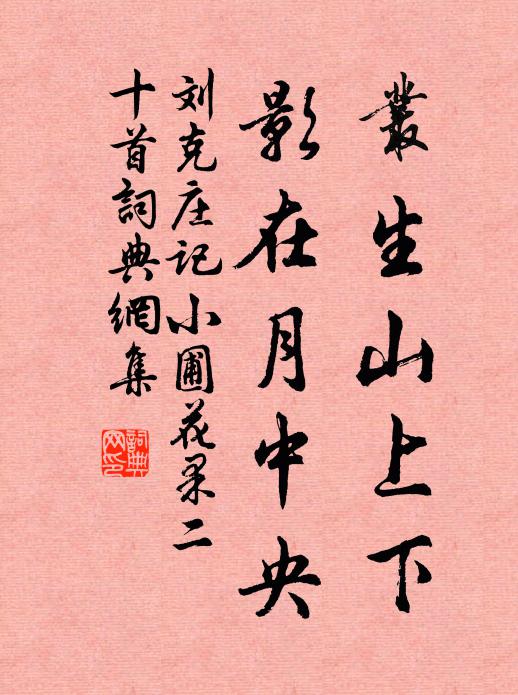 叢生山上下
影在月中央
刘克庄记小圃花果二
十首詞典網集
詞典
网印